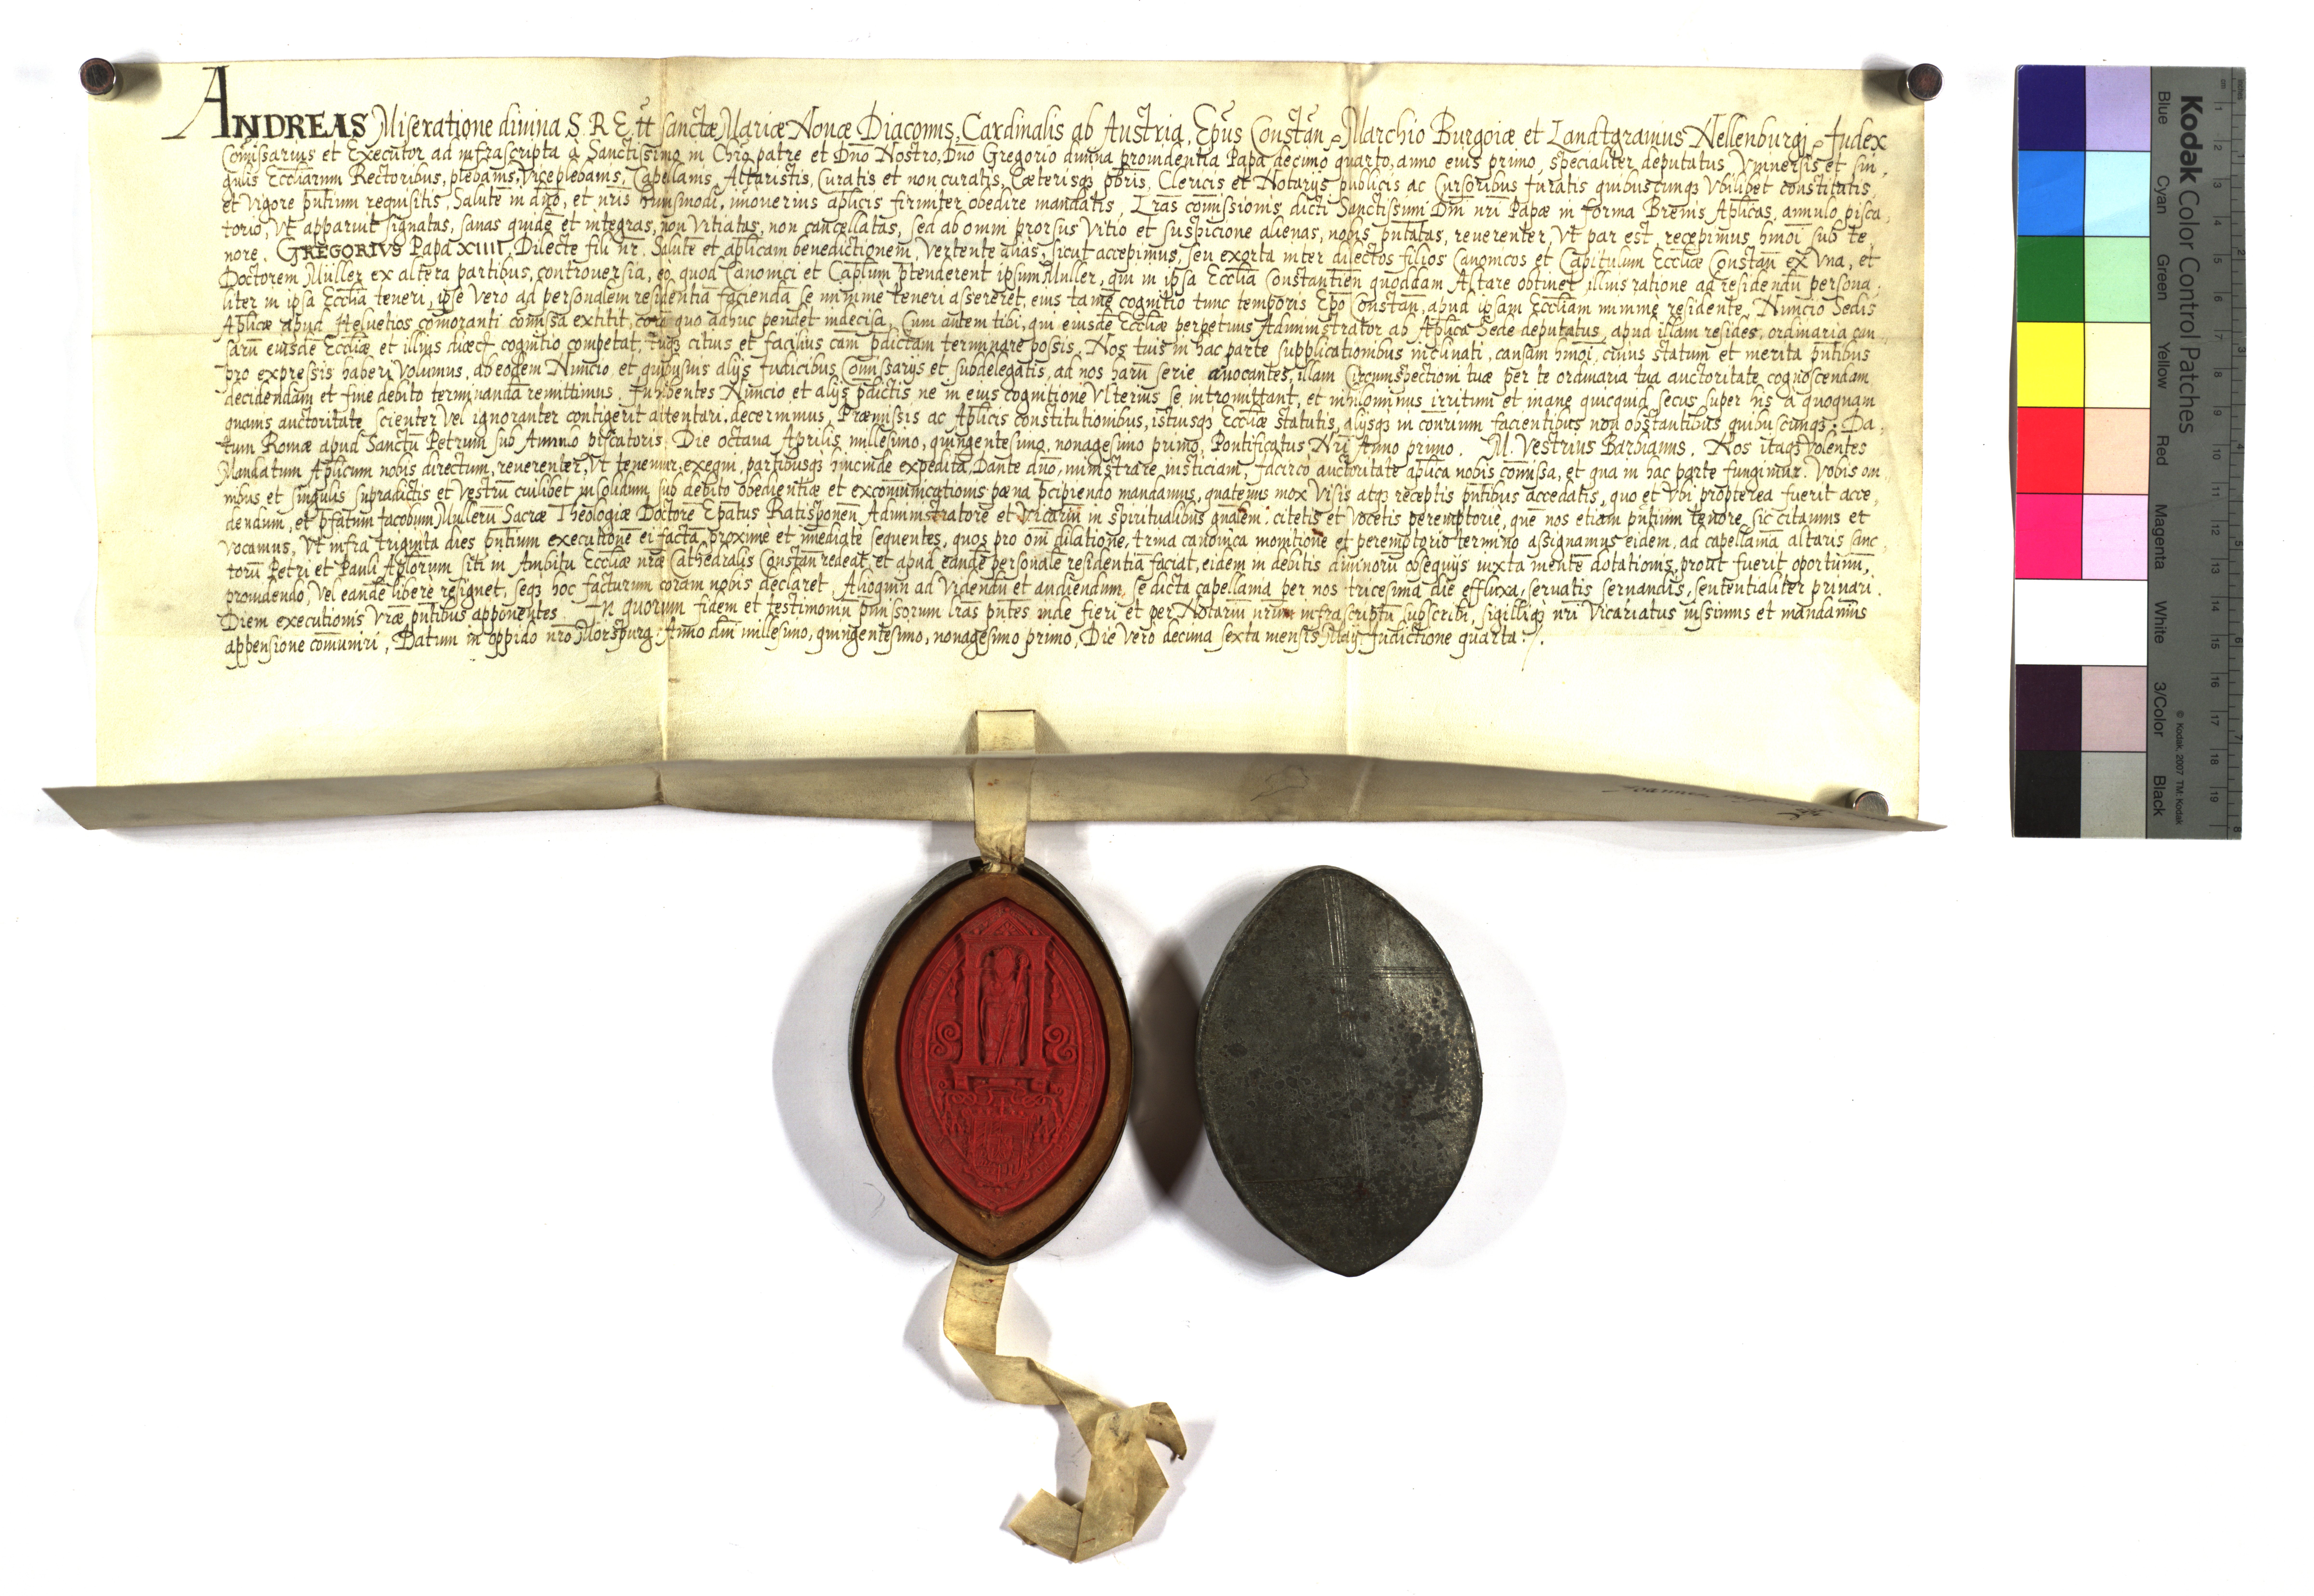 ANDREAS Miseratione divina S. R. E. tt. sanctæ Mariæ Novæ Diaconus, Cardinalis ab Austria, Ep̄us Constan̄, Marchio Burgoiæ et Landtgravius Nellenburgi, Judex
Com̄issarius et Executor ad infrascripta à Sanctissimo in Chr̄o patre et Dn̄o Nostro, Dn̄o Gregorio divina providentia Papa decimo quarto, anno eius primo, specialiter deputatus, Vniversis et sin,
gulis Eccl̄iarum Rectoribus, plebanis, Viceplebanis, Capellanis, Altaristis, Curatis et non curatis, Cæterisq; pb̄ris, Clericis et Notarijs publicis ac Cursoribus Iuratis quibuscunq; Vbilibet constitutis,
et vigore pn̄tium requisitis, Salutē in dn̄o, et nr̄is huiusmodi, imoverius ap̄licis firmiter obedire mandatis, Lr̄as com̄issionis dicti Sanctissimi Dn̄i nr̄i Papæ in forma Brevis Ap̄licas, annulo pisca,
torio, Vt apparuit signatas, sanas quidē et integras, non Vitiatas, non cancellatas, sed ab omni prorsus Vitio et suspicione alienas, nobis pn̄tatas, reverenter, Vt par est, recepimus, hm̄oi sub te,
nore. GREGORIVS Papa XIIII. Dilecte fili nr̄. Salutē et ap̄licam benedictionem, Vertente aliàs, sicut accepimus, seu exorta inter dilectos filios Canonicos et Capitulum Eccl̄iæ Constan̄ ex Vna, et
Doctorem Müller ex altera partibus, controversia, eo, quod Canonici et Cap̄lum p̄tenderent ipsum Muller, qui in ipsa Eccl̄ia Constantien̄ quoddam Altare obtinet, illius ratione ad residendū persona,
liter in ipsa Eccl̄ia teneri, ipse verò ad personalem residentiā faciendā se minimè teneri assereret, eius tamē cognitio tunc temporis Ep̄o Constan̄, apud ipsam Eccl̄iam minimè residente, Nuncio Sedis
Ap̄licæ apud Heluetios com̄oranti com̄issa extitit, corā quo adhuc pendet indecisa, Cum autem tibi, qui eiusdē Eccl̄iæ perpetuus Administrator ab Ap̄lica Sede deputatus, apud illam resides, ordinaria cau,
sarū eiusdē Eccl̄iæ et illius diœc̄ cognitio competat, tuq; citius et facilius cam̄ p̄dictam terminare possis, Nos tuis in hac parte supplicationibus inclinati, causam hm̄oi, cuius statum et merita pn̄tibus
pro expressis haberi Volumus, ab eodem Nuncio, et quibusuis alijs Judicibus Com̄issarijs et subdelegatis, ad nos harū serie avocantes, illam Circumspectioni tuæ per te ordinaria tua auctoritate cognoscendam
decidendam et fine debito terminandā remittimus. Inhibentes Nuncio et alijs p̄dictis ne in eius cognitione Vlterius se intromittant, et nihilominus irritum et inane quicquid secus super his à quoquam
quavis auctoritate scienter Vel ignoranter contigerit attentari, decernimus, Præmissis ac Ap̄licis constitutionibus, istiusq; Eccl̄iæ statutis, alijsq; in con̄rium facientibus non obstantibus quibuscunq;. Da,
tum Romæ apud Sanctū Petrum sub Annulo piscatoris. Die octava Aprilis millesimo, quingentesimo, nonagesimo primo, Pontificatus Nr̄i Anno primo. M. Vestrius Barbianus. Nos itaq; Volentes
Mandatum Ap̄licum nobis directum, reverenter, Vt tenemur, exequi, partibusq; hincinde expeditā, Dante dn̄o, ministrare iusticiam, Idcirco auctoritate ap̄lica nobis com̄issa, et qua in hac parte fungimur. Vobis om
nibus et singulis supradictis et Vestrū cuilibet insolidum, sub debito obedientiæ et excom̄unicationis pœna p̄cipiendo mandamus, quatenus mox Visis atq; receptis pn̄tibus accedatis, quo et Vbi propterea fuerit acce,
dendum, et p̄fatum Jacobum Mullerū Sacræ Theologiæ Doctorē Ep̄atus Ratisponen̄ Administratorē et Vicariū in spiritualibus gn̄alem. citetis et Vocetis peremptoriè, quē nos etiam pn̄tium tenore sic citamus et
vocamus, Vt infra triginta dies pn̄tium executionē ei factā, proximè et im̄ediate sequentes, quos pro om̄i dilatione, trina canonica monitione et peremptorio termino assignamus eidem, ad capellaniā altaris sanc,
torū Petri et Pauli Ap̄lorum siti in Ambitu Eccl̄iæ nr̄æ Cathedralis Constan̄ redeat, et apud eandē personalē residentiā faciat, eidem in debitis divinorū obsequijs iuxta mentē dotationis, prout fuerit oportunū,
providendo, Vel eandē liberè resignet, seq; hoc facturum corām nobis declaret, Alioquin ad Videndū et audiendum, se dicta capellania per nos tricesima die effluxa, servatis servandis, sententialiter privari.
Diem executionis Vr̄æ pn̄tibus apponentes. In quorum fidem et testimoniū pn̄missorum lr̄as pn̄tes inde fieri et per Notariū nr̄um infrascriptū subscribi, sigilliq; nr̄i Vicariatus iussimus et mandavimus
appensione com̄uniri, Datum in oppido nr̄o Morspurg. Anno dn̄i millesimo, quingentesimo, nonagesimo primo, Die vero decima sexta mensis Maij Indictione quarta.
Kodak Color Control Patches
Blue Cyan Green Yellow Red Magenta White 3/Color Black
© Kodak, 2007 TM: Kodak
cm 1 2 3 4 5 6 7 8 9 10 11 12 13 14 15 16 17 18 19
inches 1 2 3 4 5 6 7 8